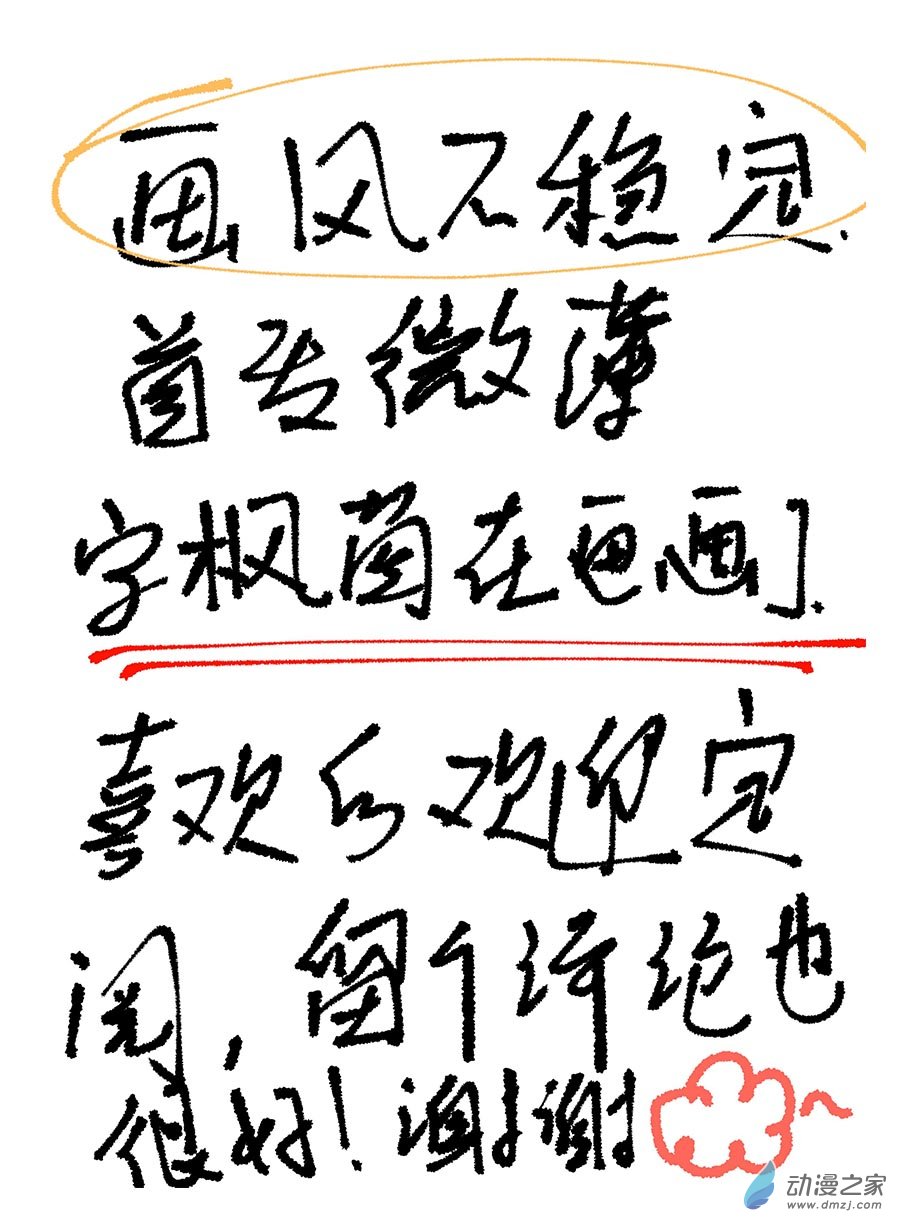 画风不稳定.
首发微薄
字枫茵在画画].
喜欢的欢迎定
阅,留个评论也
很好!谢谢
动漫之家
www.dmzj.com